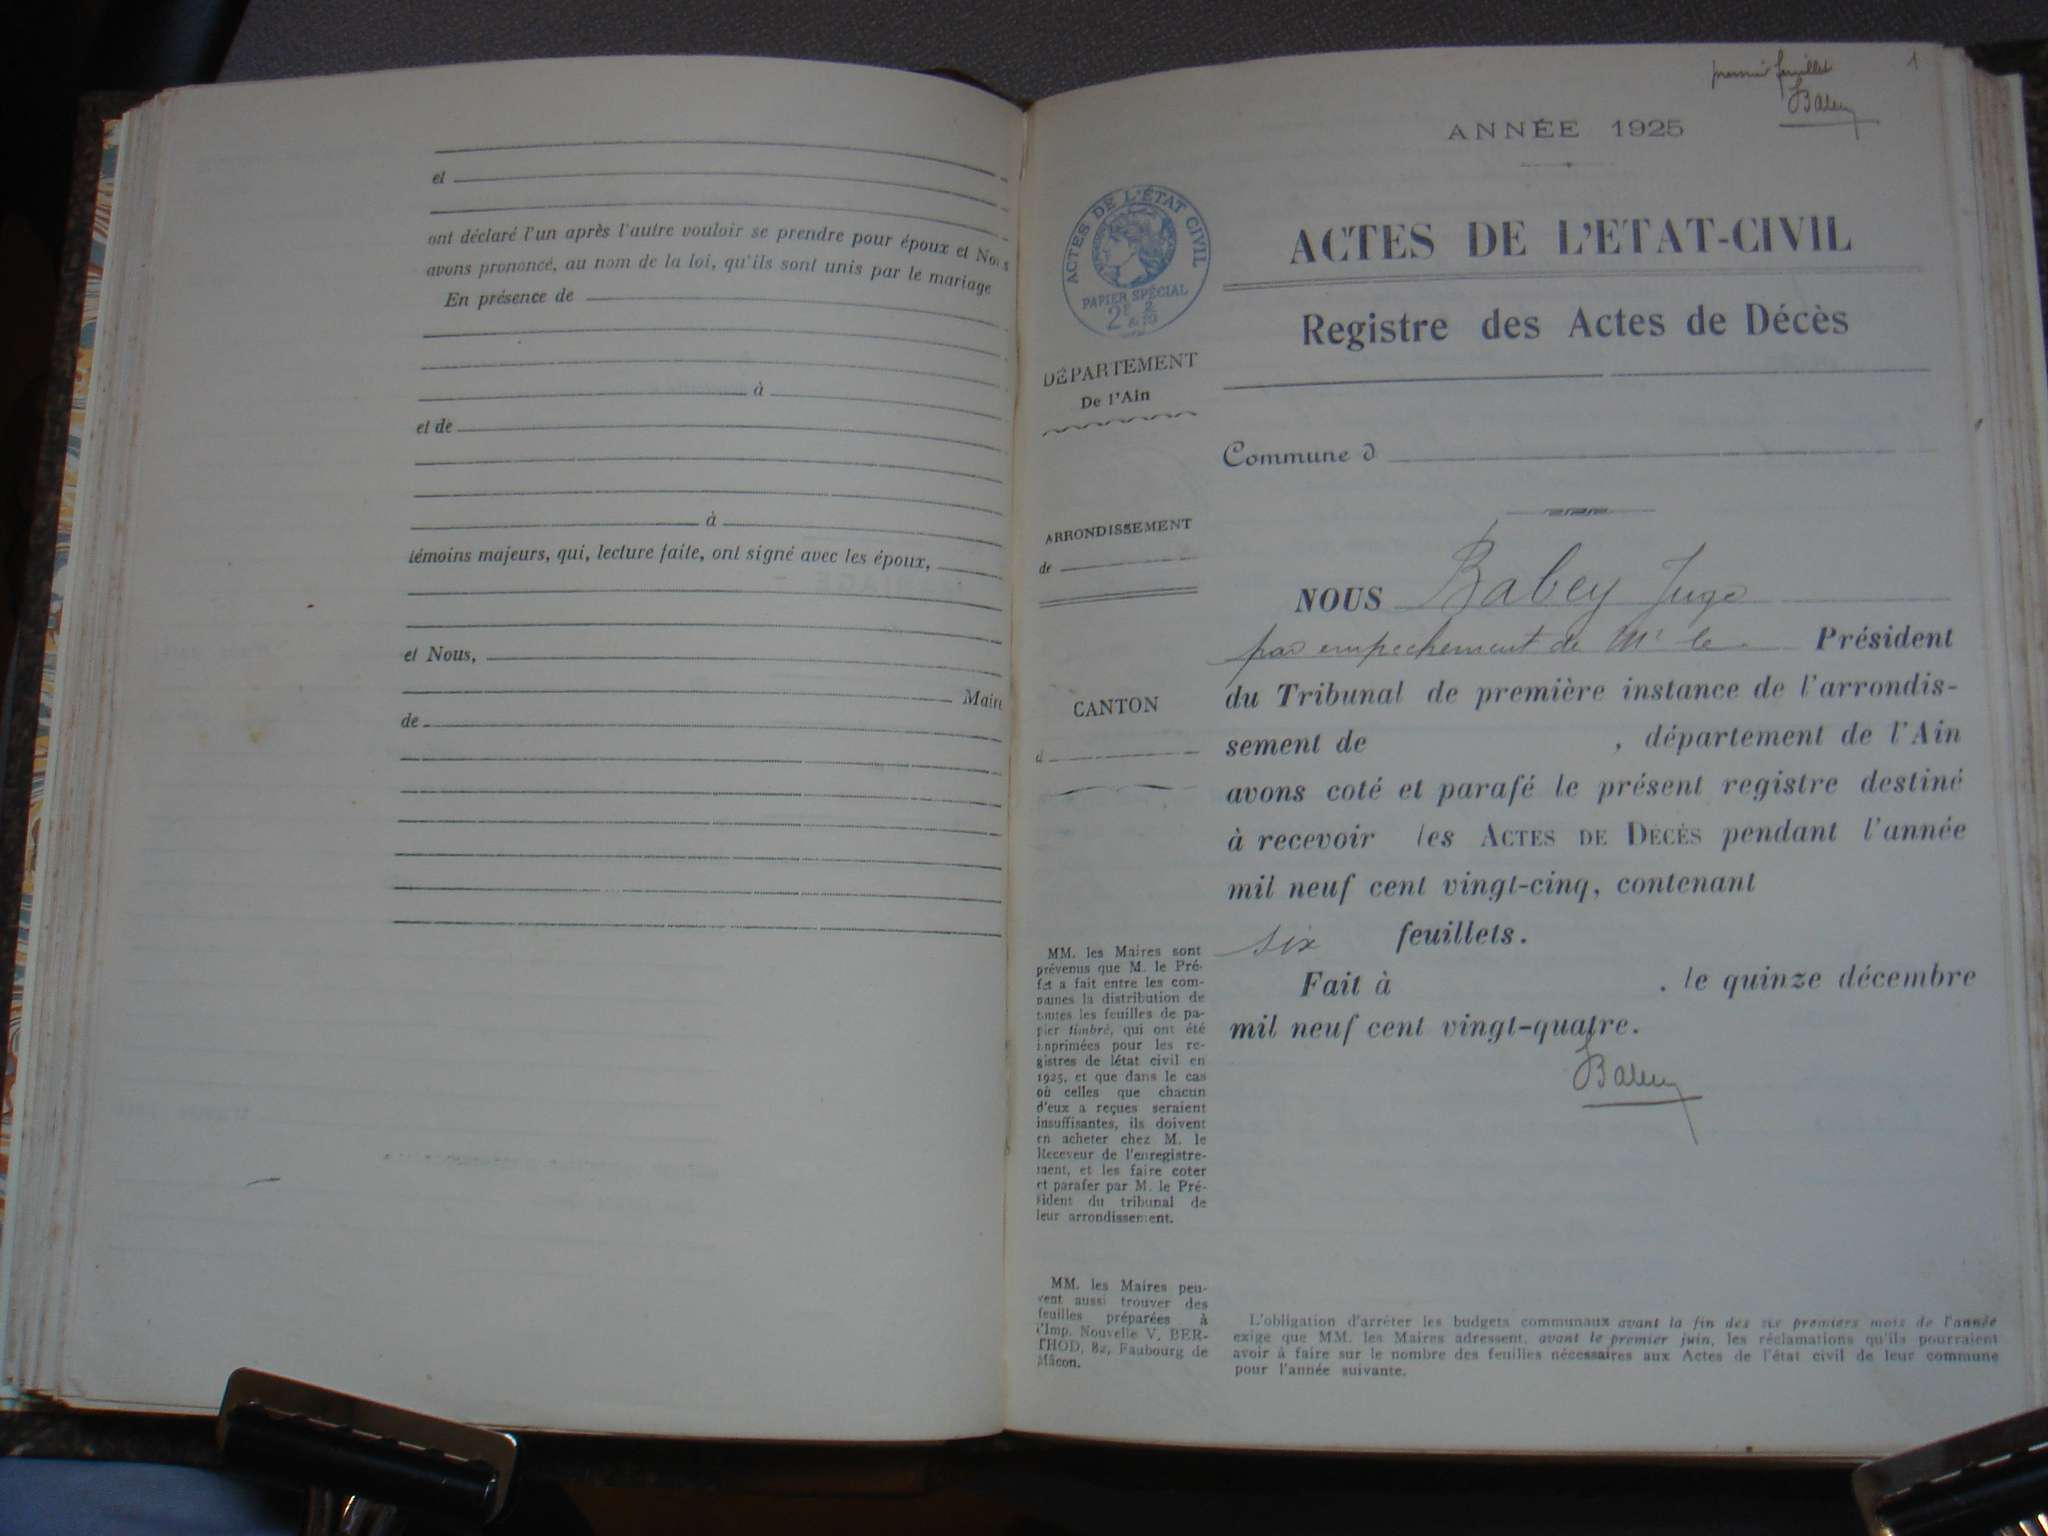 et
ont déclaré l'un après l'autre vouloir se prendre pour époux et Nous
avons prononcé, au nom de la loi, qu'ils sont unis par le mariage
En présence de
à
et de
à
témoins majeurs, qui, lecture faite, ont signé avec les époux,
et Nous,
Maire
de
premier feuillet
1
Babey
ANNÉE 1925
ACTES DE L'ÉTAT CIVIL
PAPIER SPÉCIAL
2F 2/10
ACTES DE L'ETAT-CIVIL
Registre des Actes de Décès
DÉPARTEMENT
De l'Ain
Commune d
ARRONDISSEMENT
de
CANTON
d
NOUS Babey Juge
par empechement de Mr le Président
du Tribunal de première instance de l'arrondis-
sement de , département de l'Ain
avons coté et parafé le présent registre destiné
à recevoir les ACTES DE DÉCÈS pendant l'année
mil neuf cent vingt-cinq, contenant
six feuillets.
Fait à , le quinze décembre
mil neuf cent vingt-quatre.
Babey
MM. les Maires sont
prévenus que M. le Pré-
fet a fait entre les com-
munes la distribution de
toutes les feuilles de pa-
pier timbré, qui ont été
imprimées pour les re-
gistres de létat civil en
1925, et que dans le cas
où celles que chacun
d'eux a reçues seraient
insuffisantes, ils doivent
en acheter chez M. le
Receveur de l'enregistre-
ment, et les faire coter
et parafer par M. le Pré-
sident du tribunal de
leur arrondissement.
MM. les Maires peu-
vent aussi trouver des
feuilles préparées à
l'Imp. Nouvelle V. BER-
THOD, 82, Faubourg de
Mâcon.
L'obligation d'arrêter les budgets communaux avant la fin des six premiers mois de l'année
exige que MM. les Maires adressent, avant le premier juin, les réclamations qu'ils pourraient
avoir à faire sur le nombre des feuilles nécessaires aux Actes de l'état civil de leur commune
pour l'année suivante.